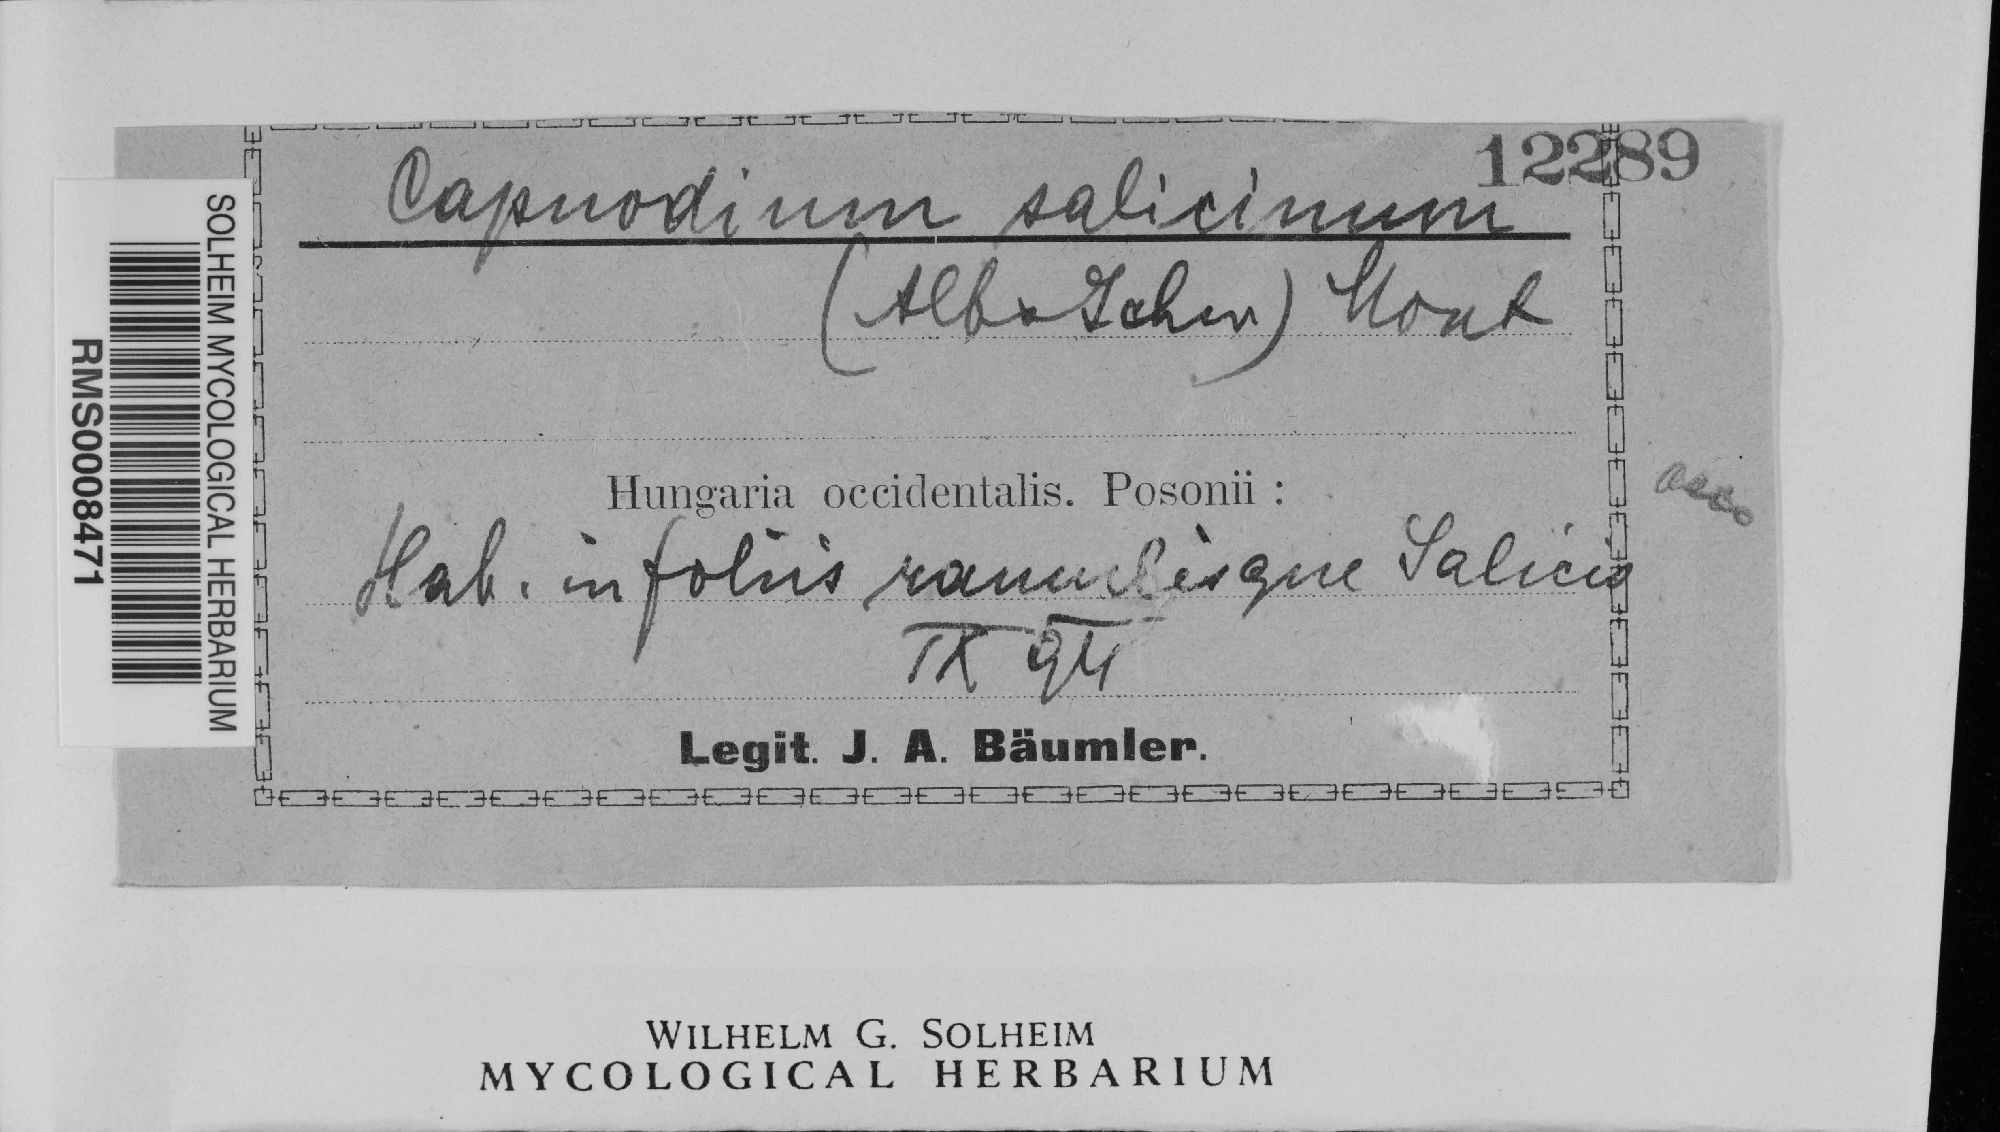 12289
Capnodium salicinum
(Alb & Schw) Mont
Hungaria occidentalis. Posonii :
Hab. in foliis ramulisque Salicis
IX 94
Legit. J. A. Bäumler.
asco
SOLHEIM MYCOLOGICAL HERBARIUM
RMS0008471
WILHELM G. SOLHEIM
MYCOLOGICAL HERBARIUM